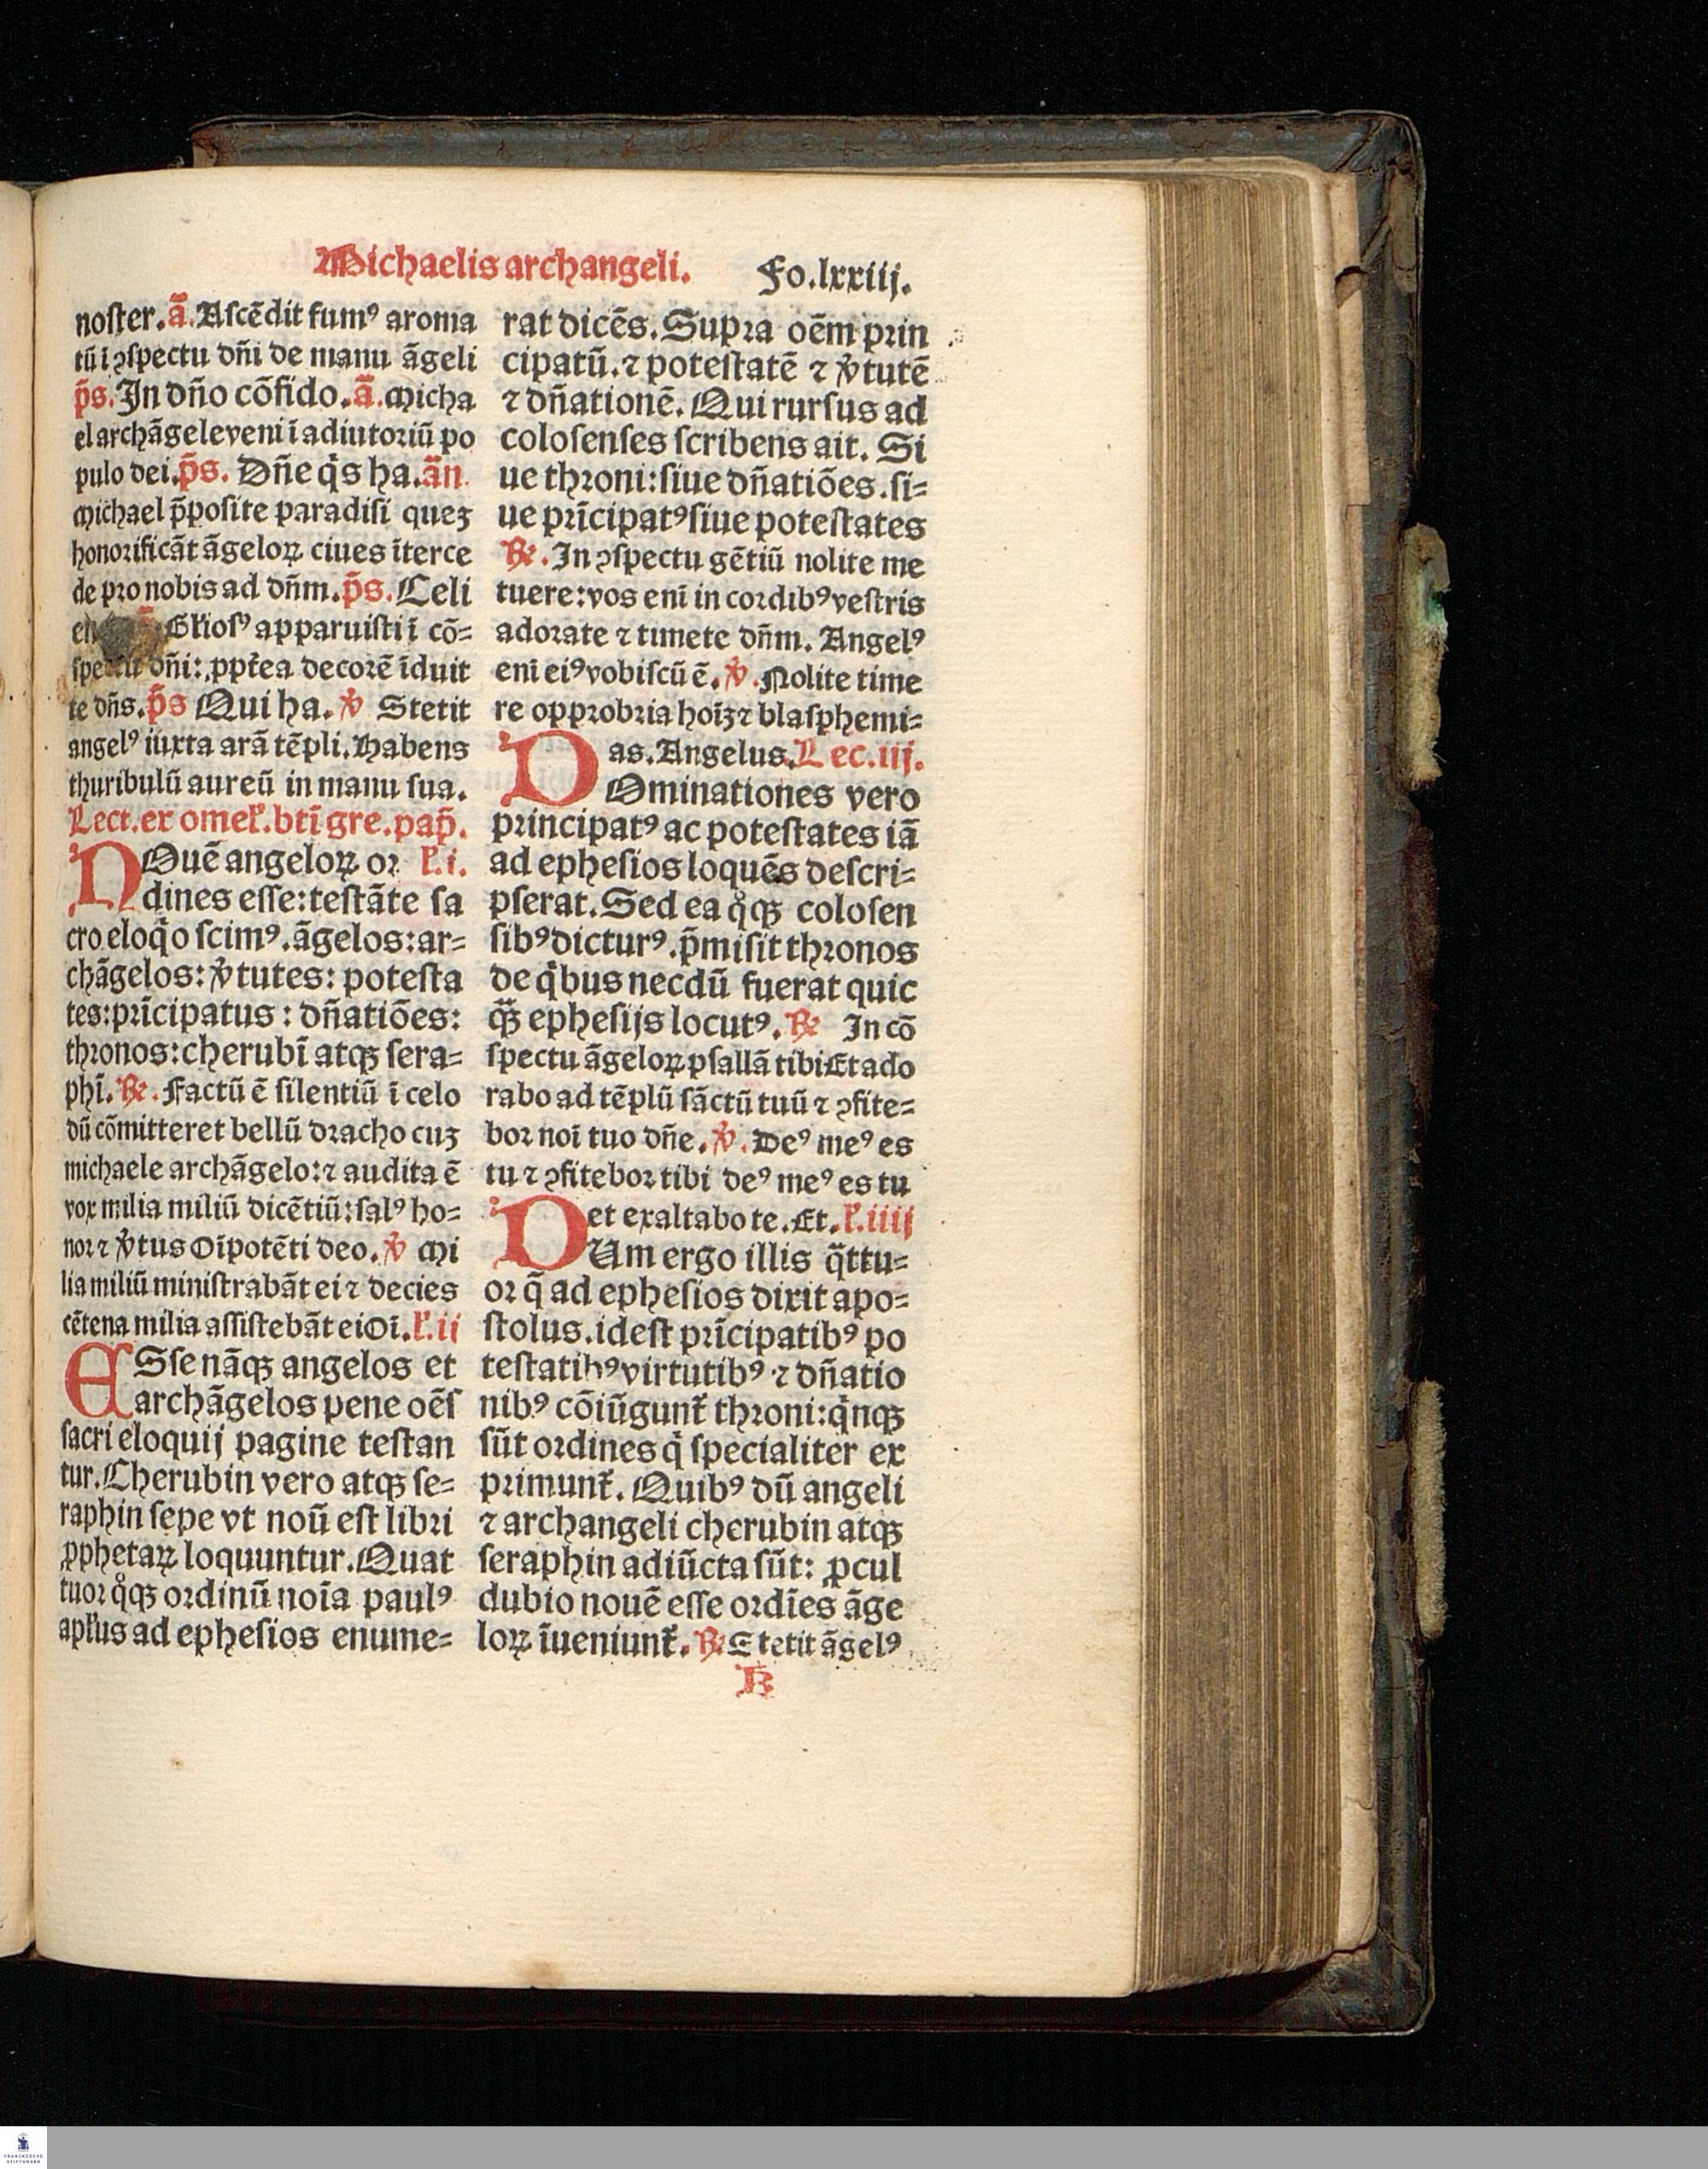 Michaelis archangeli.
Fo.lxxiij.
noster.ā. Ascēdit fumꝰ aroma
tū ī ꝯspectu dn̄i de manu āgeli
p̄s. In dn̄o cōfido. ā. Micha
el archāgele veni ī adiutoriū po
pulo dei. p̄s. Dn̄e q̇s ha. ān
Michael p̄posite paradisi quez
honorificāt āgeloꝝ ciues īterce
de pro nobis ad dn̄m. p̄s. Celi
Gl̄iosꝰ apparuisti ī cō=
dn̄i: ꝓpt̄ea decorē īduit
te dn̄s. p̄s Qui ha. ℣ Stetit
angelꝰ iuxta arā tēpli. Habens
thuribulū aureū in manu sua.
Lect. ex omel̄. bt̄i gre. pap̄.
NOuē angeloꝝ or l̄.i.
dines esse: testāte sa
cro eloq̇o scimꝰ. āgelos: ar=
chāgelos: v̓tutes: potesta
tes: prīcipatus: dn̄atiōes:
thronos: cherubī atqꝫ sera=
phī. ℟. Factū ē silentiū ī celo
dū cōmitteret bellū dracho cuz
michaele archāgelo: ⁊ audita ē
vox milia miliū dicētiū: salꝰ ho=
nor ⁊ v̓tus oīpotēti deo. ℣ Mi
lia miliū ministrabāt ei ⁊ decies
cētena milia assistebāt ei Oī. l̄.ii
ESse nāqꝫ angelos et
archāgelos pene oēs
sacri eloquij pagine testan
tur. Cherubin vero atqꝫ se=
raphin sepe vt noū est libri
ꝓphetaꝝ loquuntur. Quat
tuor q̊qꝫ ordinū noīa paulꝰ
apl̄us ad ephesios enume=
rat dicēs. Supra oēm prin
cipatū. ⁊ potestatē ⁊ v̓tutē
⁊ dn̄ationē. Qui rursus ad
colosenses scribens ait. Si
ue throni: siue dn̄atiōes. si=
ue prīcipatꝰ siue potestates
℟. In ꝯspectu gētiū nolite me
tuere: vos enī in cordibꝰ vestris
adorate ⁊ timete dn̄m. Angelꝰ
enī eiꝰ vobiscū ē. ℣. Nolite time
re opprobria hoīꝫ ⁊ blasphemi=
as. Angelus. Lec.iij.
DOminationes vero
principatꝰ ac potestates iā
ad ephesios loquēs descri=
pserat. Sed ea q̊qꝫ colosen
sibꝰ dicturꝰ. p̄misit thronos
de q̇bus necdū fuerat quic
q̄ꝫ ephesijs locutꝰ. ℟ In cō
spectu āgeloꝝ psallā tibi Et ado
rabo ad tēplū sāctū tuū ⁊ ꝯfite=
bor noī tuo dn̄e. ℣. Deꝰ meꝰ es
tu ⁊ ꝯfitebor tibi deꝰ meꝰ es tu
et exaltabo te. Et. l̄.iiij
DUm ergo illis q̄ttu=
or q̄ ad ephesios dixit apo=
stolus. idest prīcipatibꝰ po
testatibꝰ virtutibꝰ ⁊ dn̄atio
nibꝰ cōiūgunt̄ throni: q̇nqꝫ
sūt ordines q̇ specialiter ex
primunt̄. Quibꝰ dū angeli
⁊ archangeli cherubin atqꝫ
seraphin adiūcta sūt: ꝓcul
dubio nouē esse ordīes āge
loꝝ īueniunt̄. ℟ Stetit āgelꝰ
K
FRANCKESCHE
STIFTUNGEN